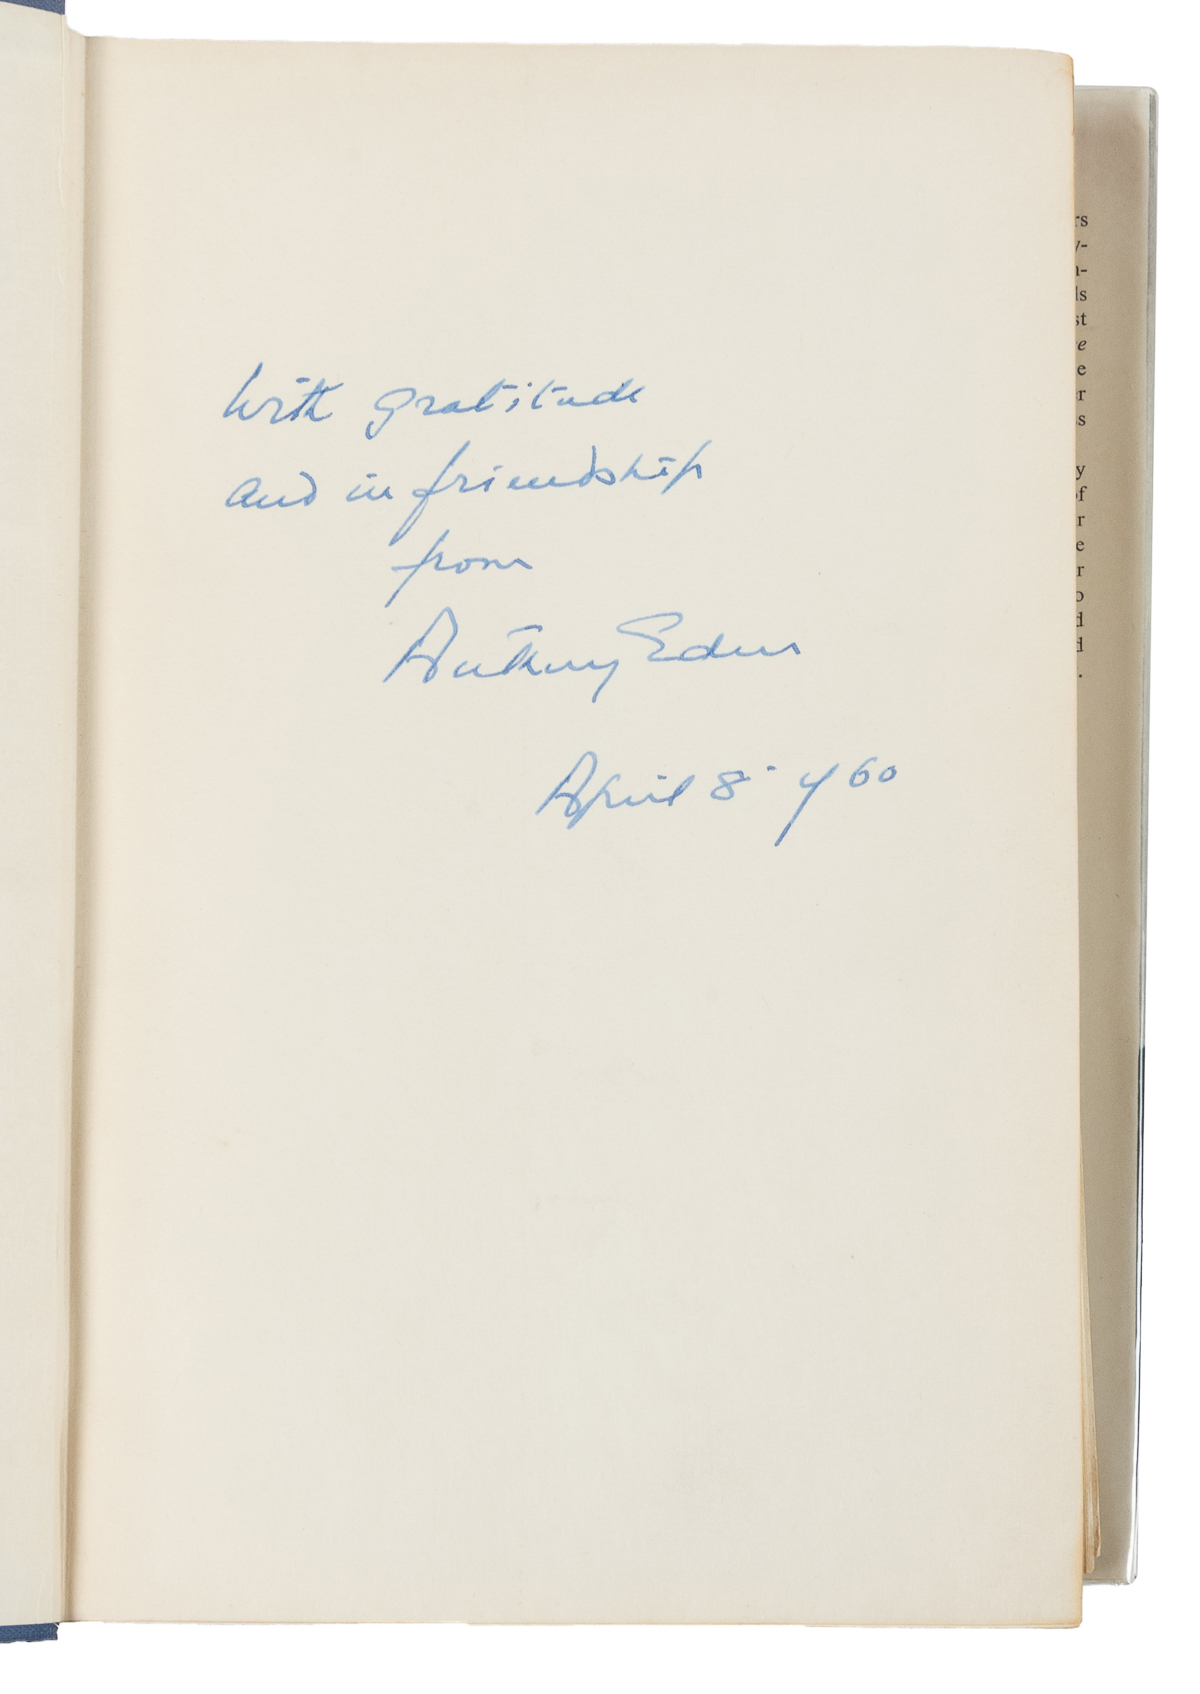 With gratitude
and in friendship
from
Anthony Eden
April 8 1960
rs
y-
n-
ls
st
e
e
er
ss
y
of
r
e
r
o
d
d
.